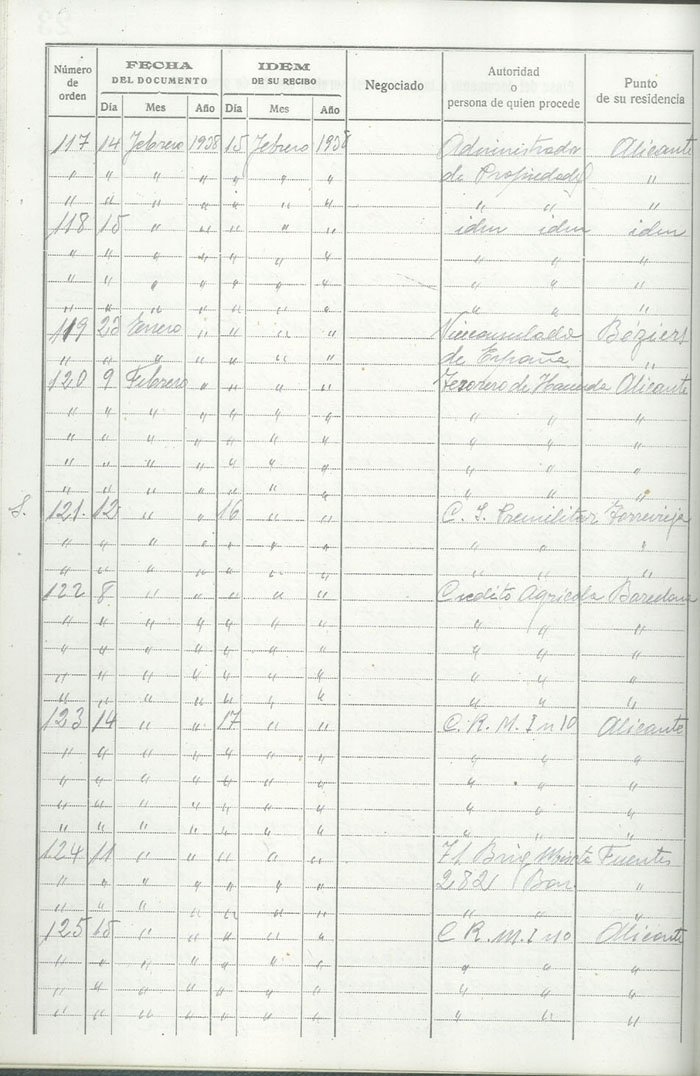 Número de orden | FECHA DEL DOCUMENTO | IDEM DE SU RECIBO | Negociado | Autoridad o persona de quien procede | Punto de su residencia
Día | Mes | Año | Día | Mes | Año
117 14 Febrero 1938 15 Febrero 1938 Administrador Alicante
" " " " " " " de Propiedades "
" " " " " " " " " "
118 15 " " " " " idem idem idem
" " " " " " " " " "
" " " " " " " " " "
" " " " " " " " " "
119 23 Enero " " " " Viceconsulado Beziers
" " " " " " " de España "
120 9 Febrero " " " " Tesorero de Hacienda Alicante
" " " " " " " " " "
" " " " " " " " " "
" " " " " " " " " "
" " " " " " " " " "
S. 121. 12 " " 16 " " C. I. Premilitar Torrevieja
" " " " " " " " " "
" " " " " " " " " "
122 8 " " " " " Credito Agricola Barcelona
" " " " " " " " " "
" " " " " " " " " "
" " " " " " " " " "
" " " " " " " " " "
123 14 " " 17 " " C. R. M. I n 10 Alicante
" " " " " " " " " "
" " " " " " " " " "
" " " " " " " " " "
" " " " " " " " " "
124 11 " " " " " 71 Brig. Mixta Fuentes
" " " " " " " 282 Bon "
" " " " " " " " " "
125 15 " " " " " C R. M. I n 10 Alicante
" " " " " " " " " "
" " " " " " " " " "
" " " " " " " " " "